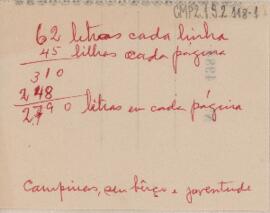 CMP2.1.9.2 118-1
62 letras cada linha
45 linhas cada página
310
248
2790 letras em cada página
Campinas, seu berço e juventude